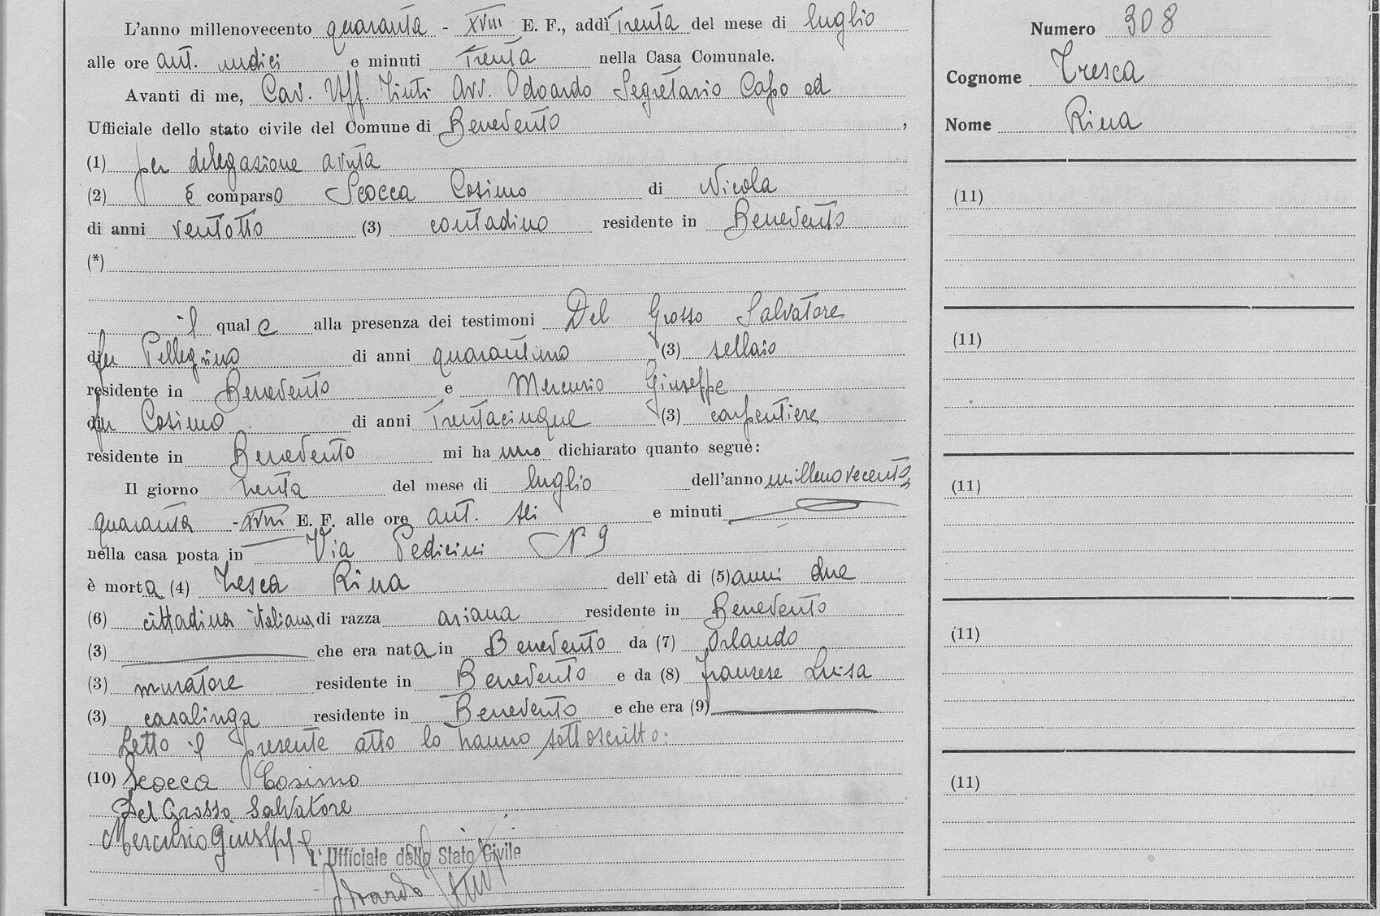 L'anno millenovecento quaranta - XVIII E. F., addì Trenta del mese di luglio
alle ore ant. undici e minuti Trenta nella Casa Comunale.
Avanti di me, Cav. Uff. Tinti Avv. Odoardo Segretario Capo ed
Ufficiale dello stato civile del Comune di Benevento ,
(1) per delegazione avuta
(2) è comparso Scocca Cosimo di Nicola
di anni ventotto (3) contadino residente in Benevento
(*)
il quale alla presenza dei testimoni Del Grosso Salvatore
fu Pellegrino di anni quarantuno (3) sellaio
residente in Benevento e Mercurio Giuseppe
fu Cosimo di anni Trentacinque (3) carpentiere
residente in Benevento mi hanno dichiarato quanto segue:
Il giorno trenta del mese di luglio dell'anno millenovecento
quaranta - XVIII E. F. alle ore ant. sei e minuti
nella casa posta in Via Pedicini N 9
è morta (4) Tresca Rina dell'età di (5) anni due
(6) cittadina italiana di razza ariana residente in Benevento
(3) che era nata in Benevento da (7) Orlando
(3) muratore residente in Benevento e da (8) Franzese Luisa
(3) casalinga residente in Benevento e che era (9)
Letto il presente atto lo hanno sottoscritto.
(10) Scocca Cosimo
Del Grosso Salvatore
Mercurio Giuseppe
L'Ufficiale dello Stato Civile
Numero 308
Cognome Tresca
Nome Rina
(11)
(11)
(11)
(11)
(11)